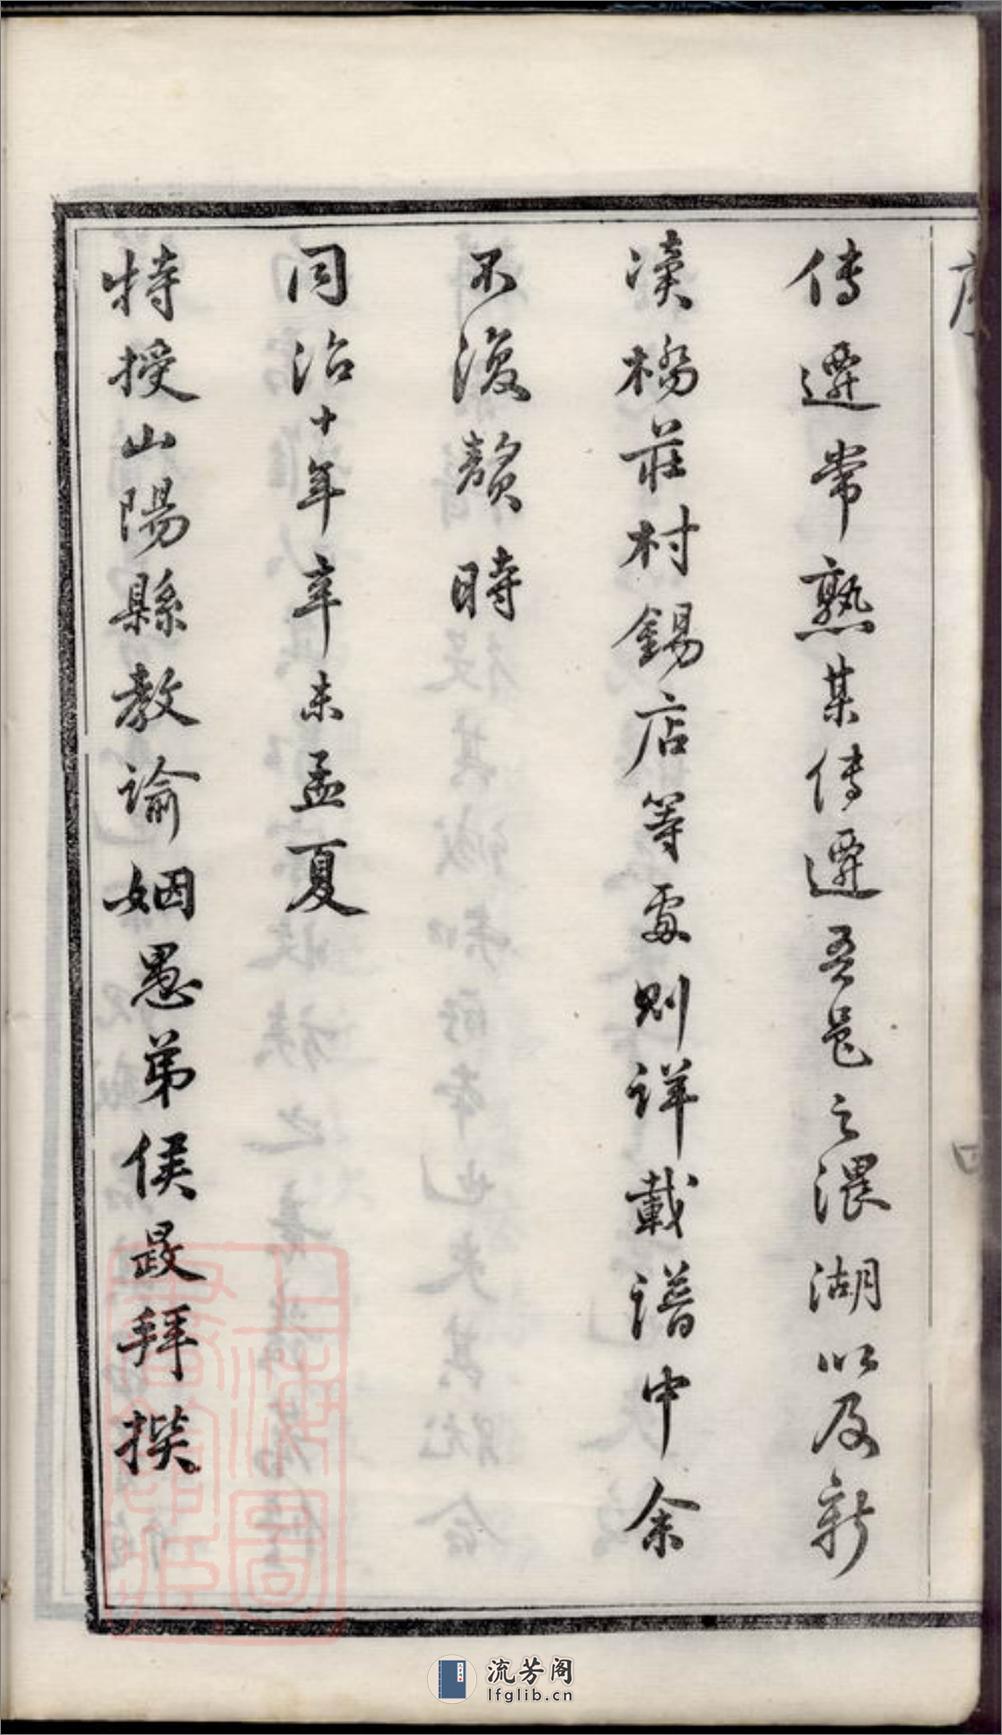 傳遷常熟某傳遷吾邑之㵎湖以及新
瀆橋莊村錫店等處則詳載譜中余
不復贅時
同治十年辛未孟夏
特授山陽縣教諭姻愚弟侯晸拜撰
上海圖書館藏
流芳阁
lfglib.cn